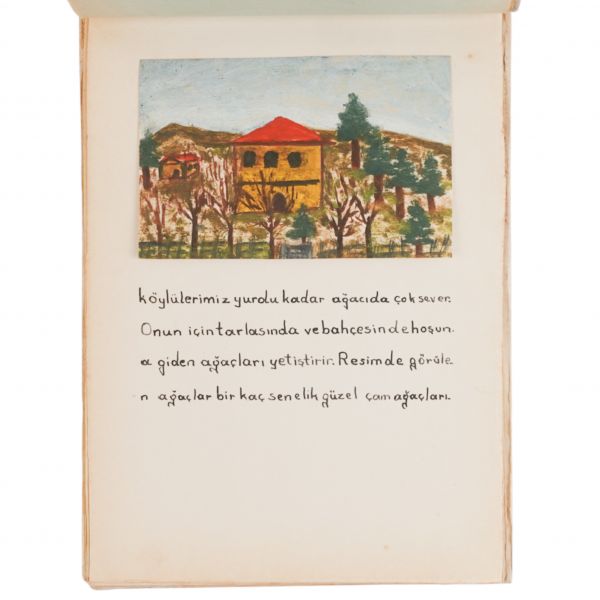 köylülerimiz yurdu kadar ağacıda çok sever.
Onun için tarlasında ve bahçesinde hoşun.
a giden ağaçları yetiştirir. Resimde görüle
n ağaçlar bir kaç senelik güzel çam ağaçları.